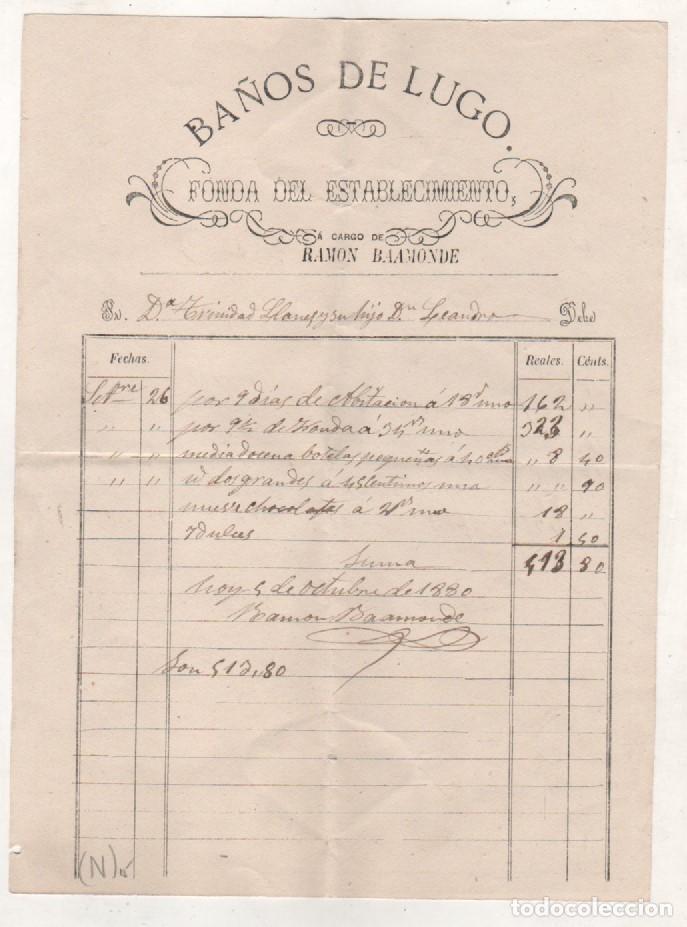 BAÑOS DE LUGO.
FONDA DEL ESTABLECIMIENTO,
Á CARGO DE
RAMON BAAMONDE
Dª Trinidad Llanes y su hijo Dn Leandro Debe
Fechas. Reales. Cénts.
Setbre 26 por 9 dias de Abitacion á 18 rs uno 162 "
" " por 9 ½ de Fonda a 34 rs uno 323 "
" " media docena botellas pequeñas á " 8 40
" " id dos grandes á 45 Centimos una " " 90
nueve chocolates á 2 rs uno 18 "
7 dulces 1 50
Suma 513 80
hoy 5 de octubre de 1880
Ramon Baamonde
Son 513,80
(N)
todocoleccion